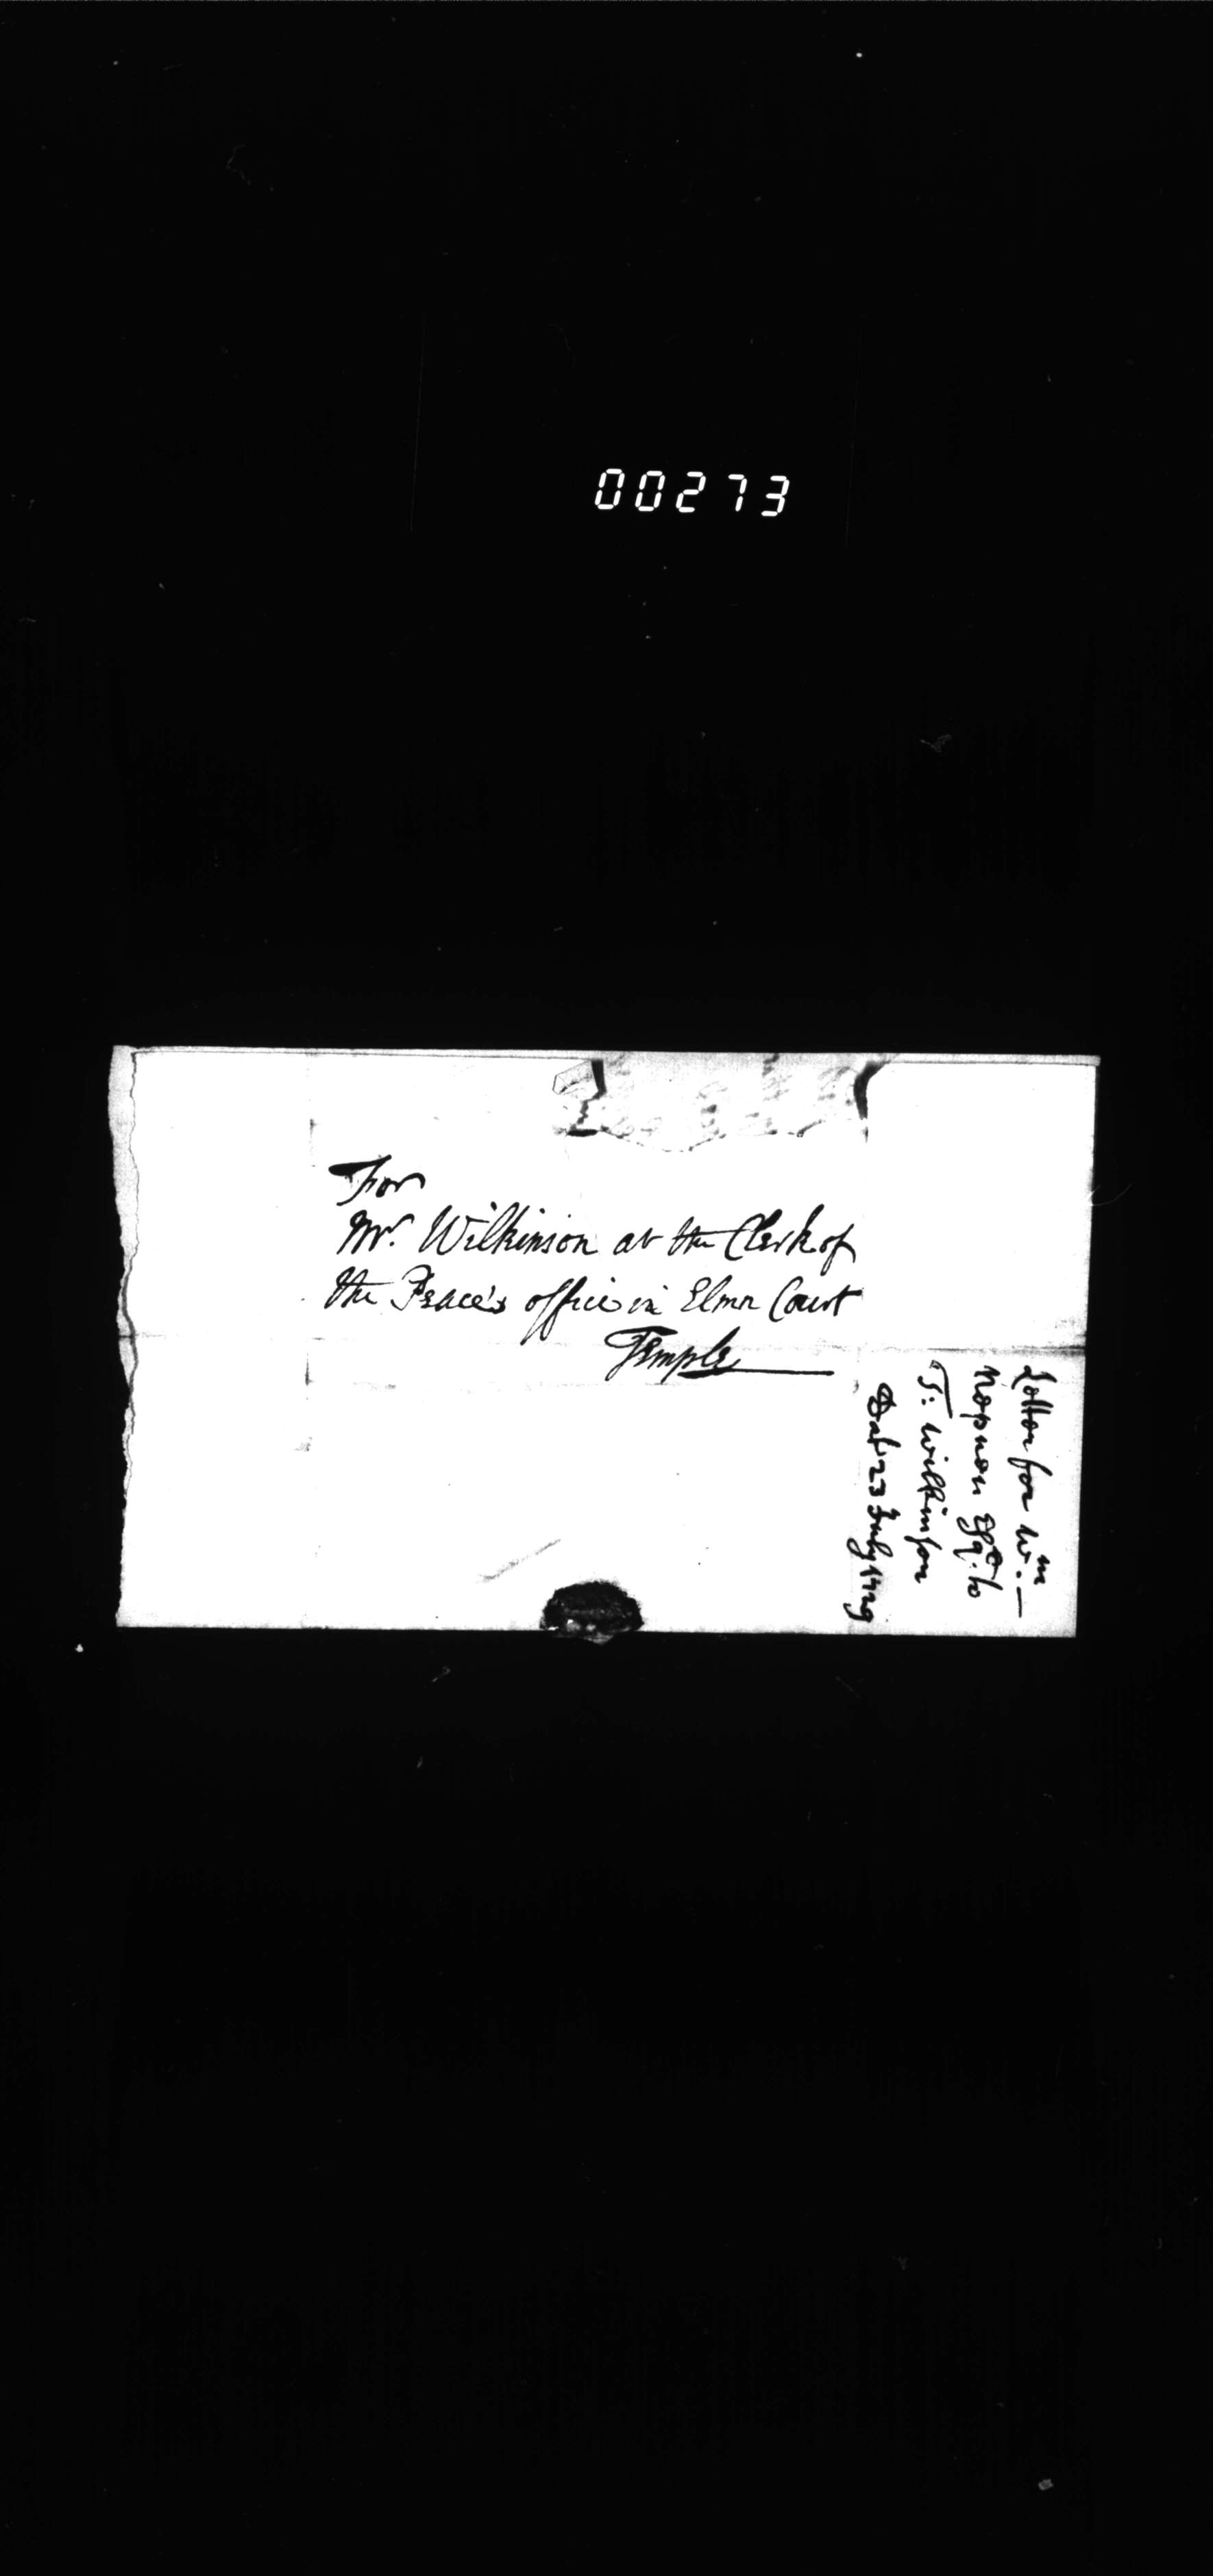 00273
For
Mr. Wilkinson at the Clerk of
the Peace's office in Elm Court
Temple
Letter for Wm. —
Esqr. to
T: Wilkinson
Dat. 23 July 1729